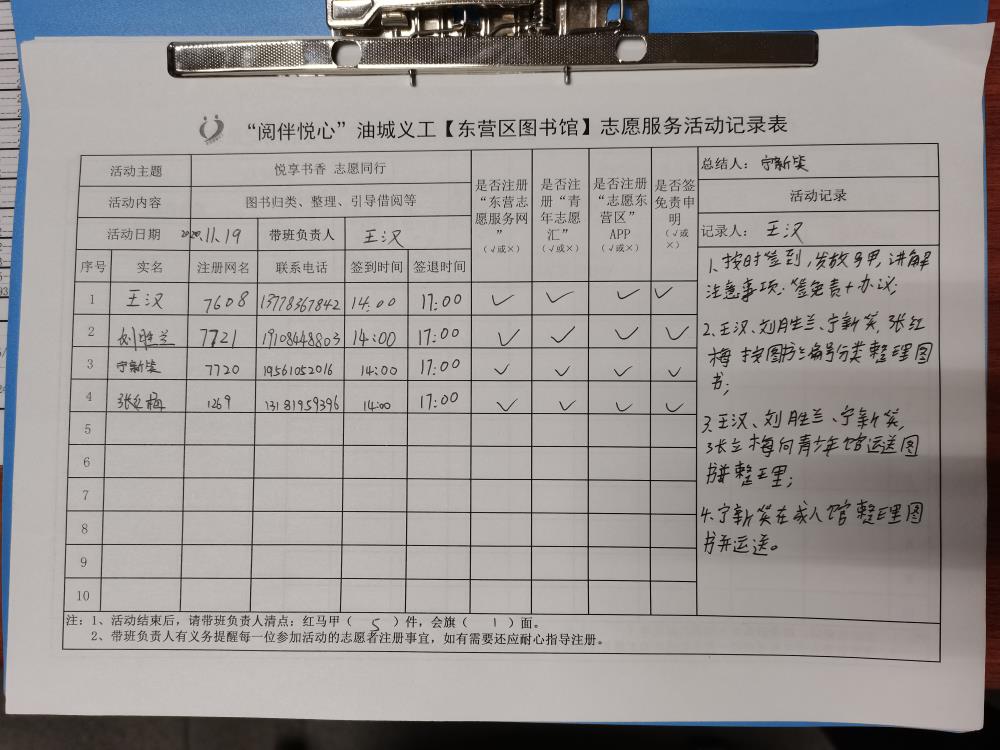 “阅伴悦心”油城义工【东营区图书馆】志愿服务活动记录表
活动主题 悦享书香 志愿同行
活动内容 图书归类、整理、引导借阅等
活动日期 2020.11.19 带班负责人 王汉
是否注册“东营志愿服务网”（√或×）
是否注册“青年志愿汇”（√或×）
是否注册“志愿东营区”APP（√或×）
是否签免责申明（√或×）
序号 实名 注册网名 联系电话 签到时间 签退时间
1 王汉 7608 13778367842 14:00 17:00 ✓ ✓ ✓ ✓
2 刘胜兰 7721 19108448803 14:00 17:00 ✓ ✓ ✓ ✓
3 宁新笑 7720 19561052016 14:00 17:00 ✓ ✓ ✓ ✓
4 张红梅 1269 13181959396 14:00 17:00 ✓ ✓ ✓ ✓
5
6
7
8
9
10
总结人：宁新笑
活动记录
记录人：王汉
1、按时签到，发放马甲，讲解
注意事项；签免责+办议；
2、王汉、刘胜兰、宁新笑，张红
梅按图书编号分类整理图
书；
3、王汉、刘胜兰、宁新笑，
张红梅向青少年馆运送图
书并整理；
4、宁新笑在成人馆整理图
书并运送。
注：1、活动结束后，请带班负责人清点：红马甲（ 5 ）件，会旗（ 1 ）面。
2、带班负责人有义务提醒每一位参加活动的志愿者注册事宜，如有需要还应耐心指导注册。